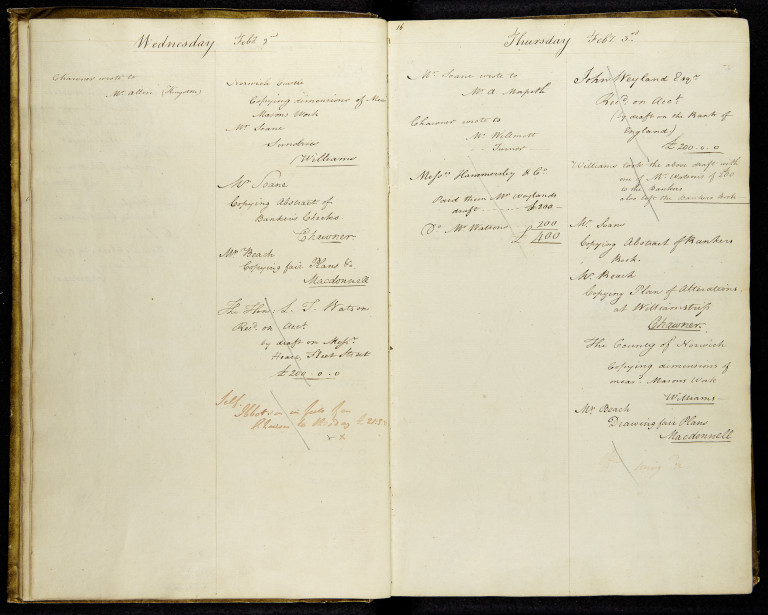 Wednesday Feb.y 2nd
Chawner wrote to
Mr. Allen (Kingston)
Norwich Castle
Copying dimensions of Meas.
Masons Work
Mr. Soane
Sundries
Williams
Mr. Soane
Copying Abstract of
Bankers Checks.
Chawner.
Mr. Beach
Copying fair Plans &c.
Macdonnell
The Hon. L. T. Watson
Recd. on Acct.
by draft on Messrs.
Hoare Fleet Street
£200.0.0
Self.
16
Thursday Feb.y 3rd
Mr. Soane wrote to
Mr. A.
Chawner wrote to
Mr. Wilmott
Turner
Messrs. Hammersley & Co.
Paid them Mr. Weylands
draft £200 —
Do. Mr. Watsons 200
£ 400
John Weyland Esqr.
Recd. on Acct.
(by draft on the Bank of
England)
£200.0.0
Williams took the above draft with
one of Mr. Watsons of £200
to the Bankers
also left the Bankers Book —
Mr. Soane
Copying Abstract of Bankers
Book.
Mr. Beach
Copying Plan of Alterations
at Williamstrip
Chawner.
The County of Norwich
Copying dimensions of
meas. Masons Work
Williams —
Mr. Beach
Drawing fair Plans
Macdonnell